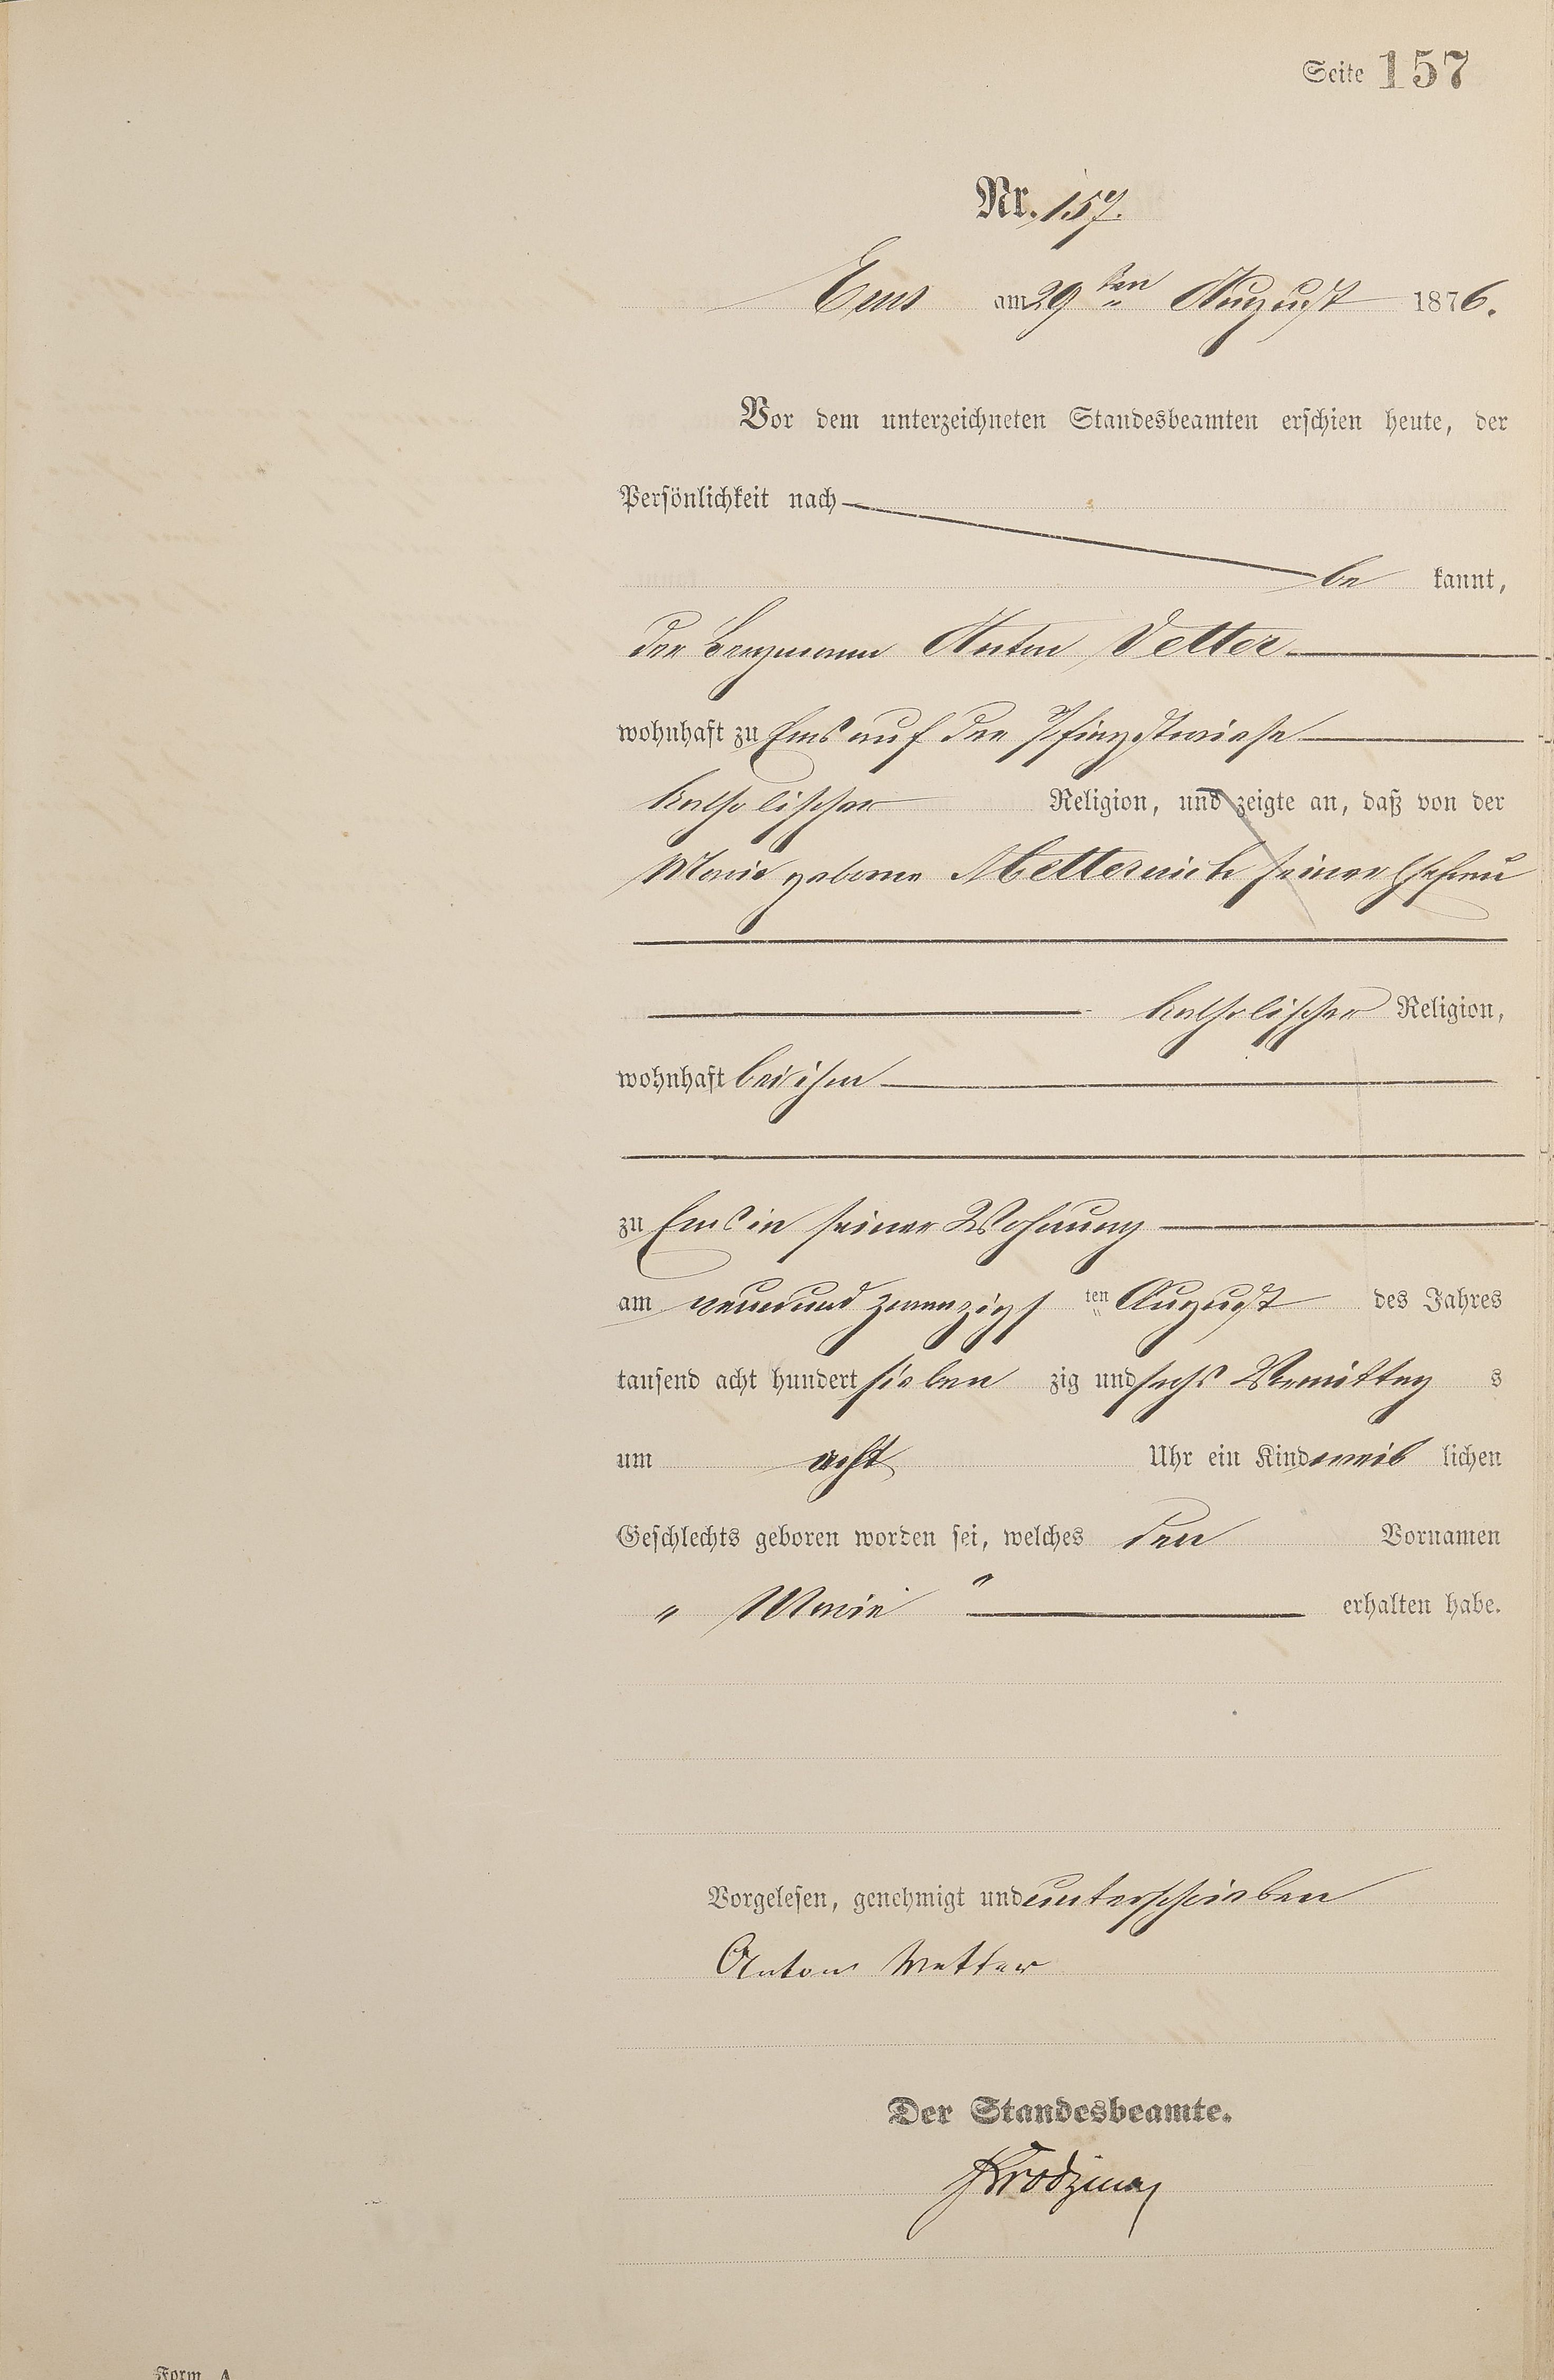 Seite 157
Nr. 157.
Ems am 29ten August 1876.
Vor dem unterzeichneten Standesbeamten erschien heute, der
Persönlichkeit nach
be kannt,
der Bergmann Anton Vetter
wohnhaft zu Ems auf der Pfingstwiese
katholischer Religion, und zeigte an, daß von der
Marie geborne Metternich seiner Ehefrau
katholischer Religion,
wohnhaft bei ihm
zu Ems in seiner Wohnung
am neunundzwanzigsten August des Jahres
tausend acht hundert sieben zig und sechs Vormittag s
um acht Uhr ein Kind weib lichen
Geschlechts geboren worden sei, welches den Vornamen
" Marie " erhalten habe.
Vorgelesen, genehmigt und unterschrieben
Anton Vetter
Der Standesbeamte.
Form A